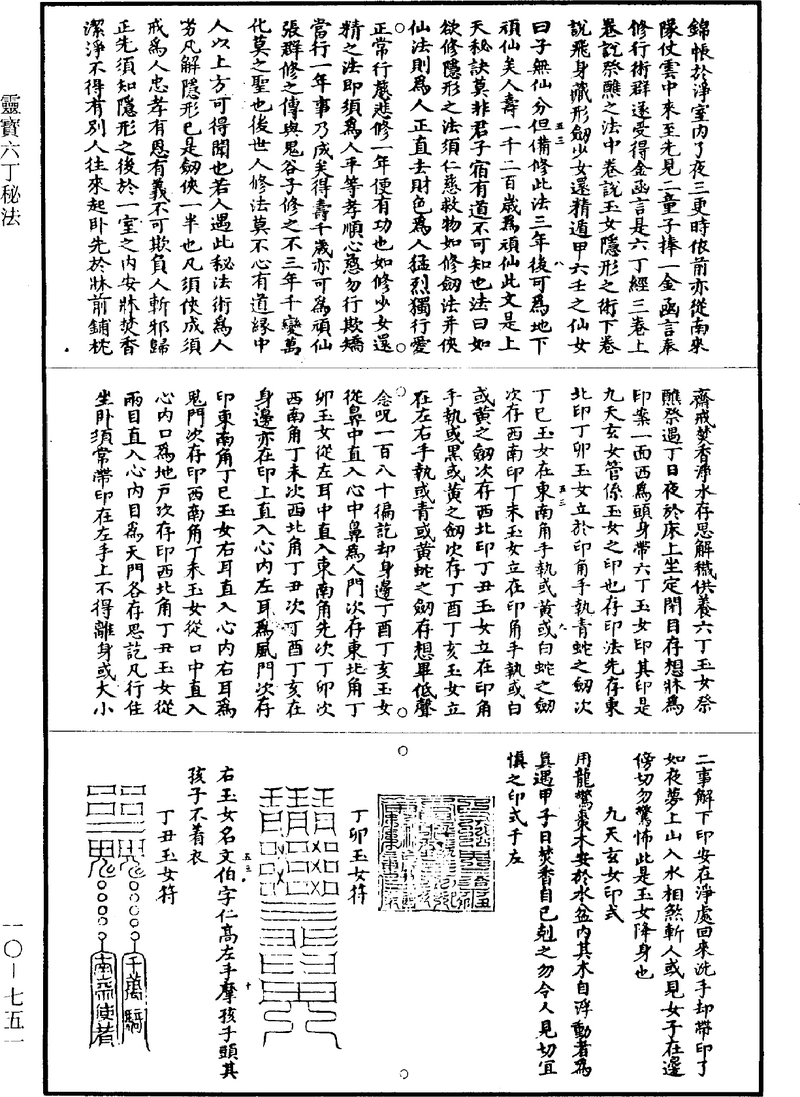 錦帳於淨室內了夜三更時依前亦從南來
隊仗雲中來至先見二童子捧一金函言奉
修行術群遂受得金函言是六丁經三卷上
卷說祭醮之法中卷說玉女隱形之術下卷
說飛身藏形劒少女還精遁甲六壬之仙女
曰子無仙分但備修此法三年後可為地下
頑仙矣人壽一千二百歲為頑仙此文是上
天秘訣莫非君子宿有道不可知也法曰如
欲修隱形之法須仁慈救物如修劒法并俠
仙法則為人正直去財色為人猛烈獨行愛
正常行慈悲修一年便有功也如修少女還
精之法即須為人平等孝順心慈勿行欺矯
當行一年事乃成矣得壽千歲亦可為頑仙
張群修之傳與鬼谷子修之不三年千變萬
化莫之聖也後世人修法莫不心有道緣中
人以上方可得聞也若人遇此秘法術為人
芳凡解隱形巳是劒俠一半也凡須俠成須
戒為人忠孝有恩有義不可欺負人斬邪歸
正先須知隱形之後於一室之內安牀焚香
潔淨不得有別人往來起卧先於牀前鋪枕
齋戒焚香淨水存思解穢供養六丁玉女祭
醮祭遇丁日夜於床上坐定閉目存想牀為
印案一面西為頭身帶六丁玉女印其印是
九天玄女管係玉女之印也存印法先存東
北印丁卯玉女立於印角手執青蛇之劒次
丁巳玉女在東南角手執或黃或白蛇之劒
次存西南印丁未玉女立在印角手執或白
或黃之劒次存西北印丁丑玉女立在印角
手執或黑或黃之劒次存丁酉丁亥玉女立
在左右手執或青或黃蛇之劒存想畢低聲
念呪一百八十徧訖却身邊丁酉丁亥玉女
從鼻中直入心中鼻為人門次存東北角丁
卯玉女從左耳中直入東南角先次丁卯次
西南角丁未次西北角丁丑次丁酉丁亥在
身邊亦在印上直入心內左耳為風門次存
印東南角丁巳玉女右耳直入心內右耳為
鬼門次存印西南角丁未玉女從口中直入
心內口為地戶次存印西北角丁丑玉女從
兩目直入心內目為天門各存思訖凡行住
坐卧須常帶印在左手上不得離身或大小
二事解下印安在淨處回來洗手却帶印了
如夜夢上山入水相煞斬人或見女子在邊
傍切勿驚怖此是玉女降身也
九天玄女印式
用龍驚棗木安於水盆內其木自浮動者為
真遇甲子日焚香自己剋之勿令人見切宜
慎之印式于左
丁卯玉女符
右玉女名文伯字仁高左手摩孩子頭其
孩子不着衣
丁丑玉女符
千萬騎
南帝使者
靈寶六丁秘法
一〇-七五一